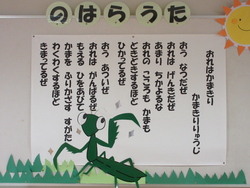 のはらうた
おれはかまきり
かまきりりゅうじ
おう なつだぜ
おれは げんきだぜ
あまり ちかよるな
おれの こころも かまも
どきどきするほど
ひかってるぜ
おう あついぜ
おれは がんばるぜ
もえる ひをあびて
かまを ふりかざす すがた
わくわくするほど
きまってるぜ